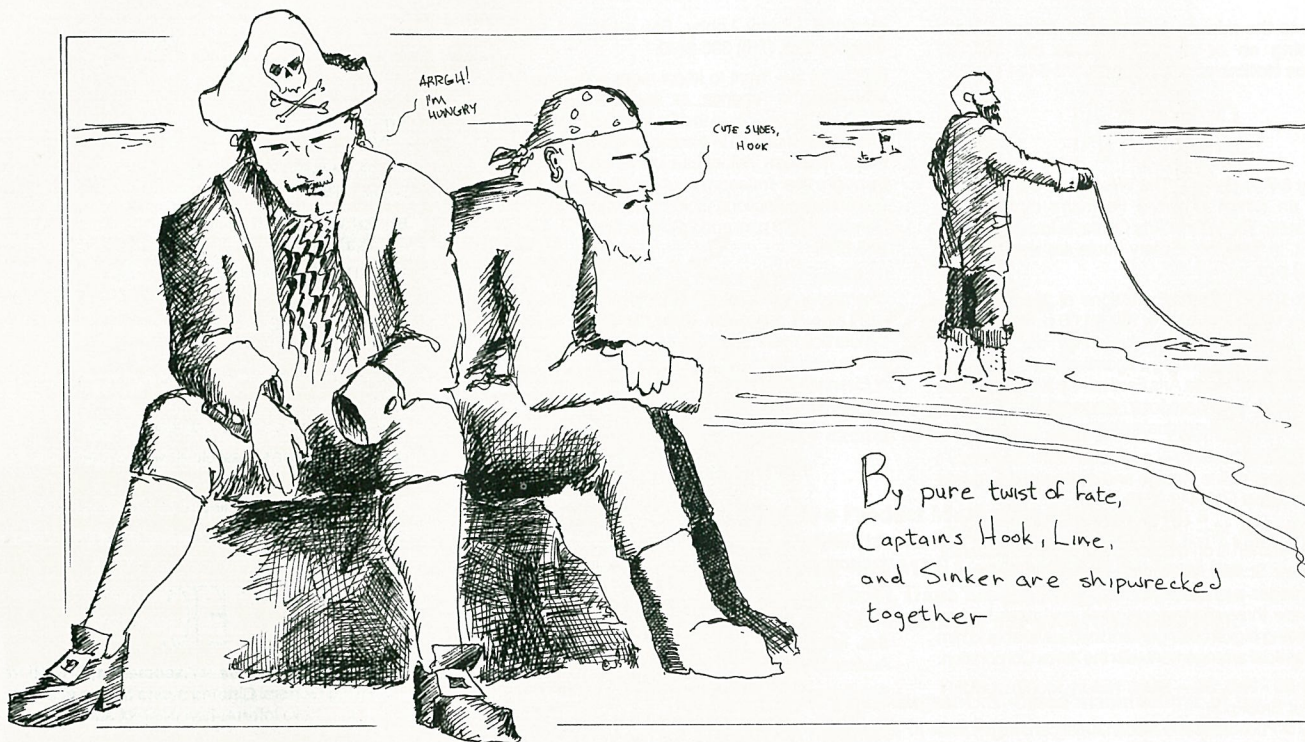 ARRGH!
I'm
HUNGRY
CUTE SHOES,
HOOK
By pure twist of fate,
Captains Hook, Line,
and Sinker are shipwrecked
together